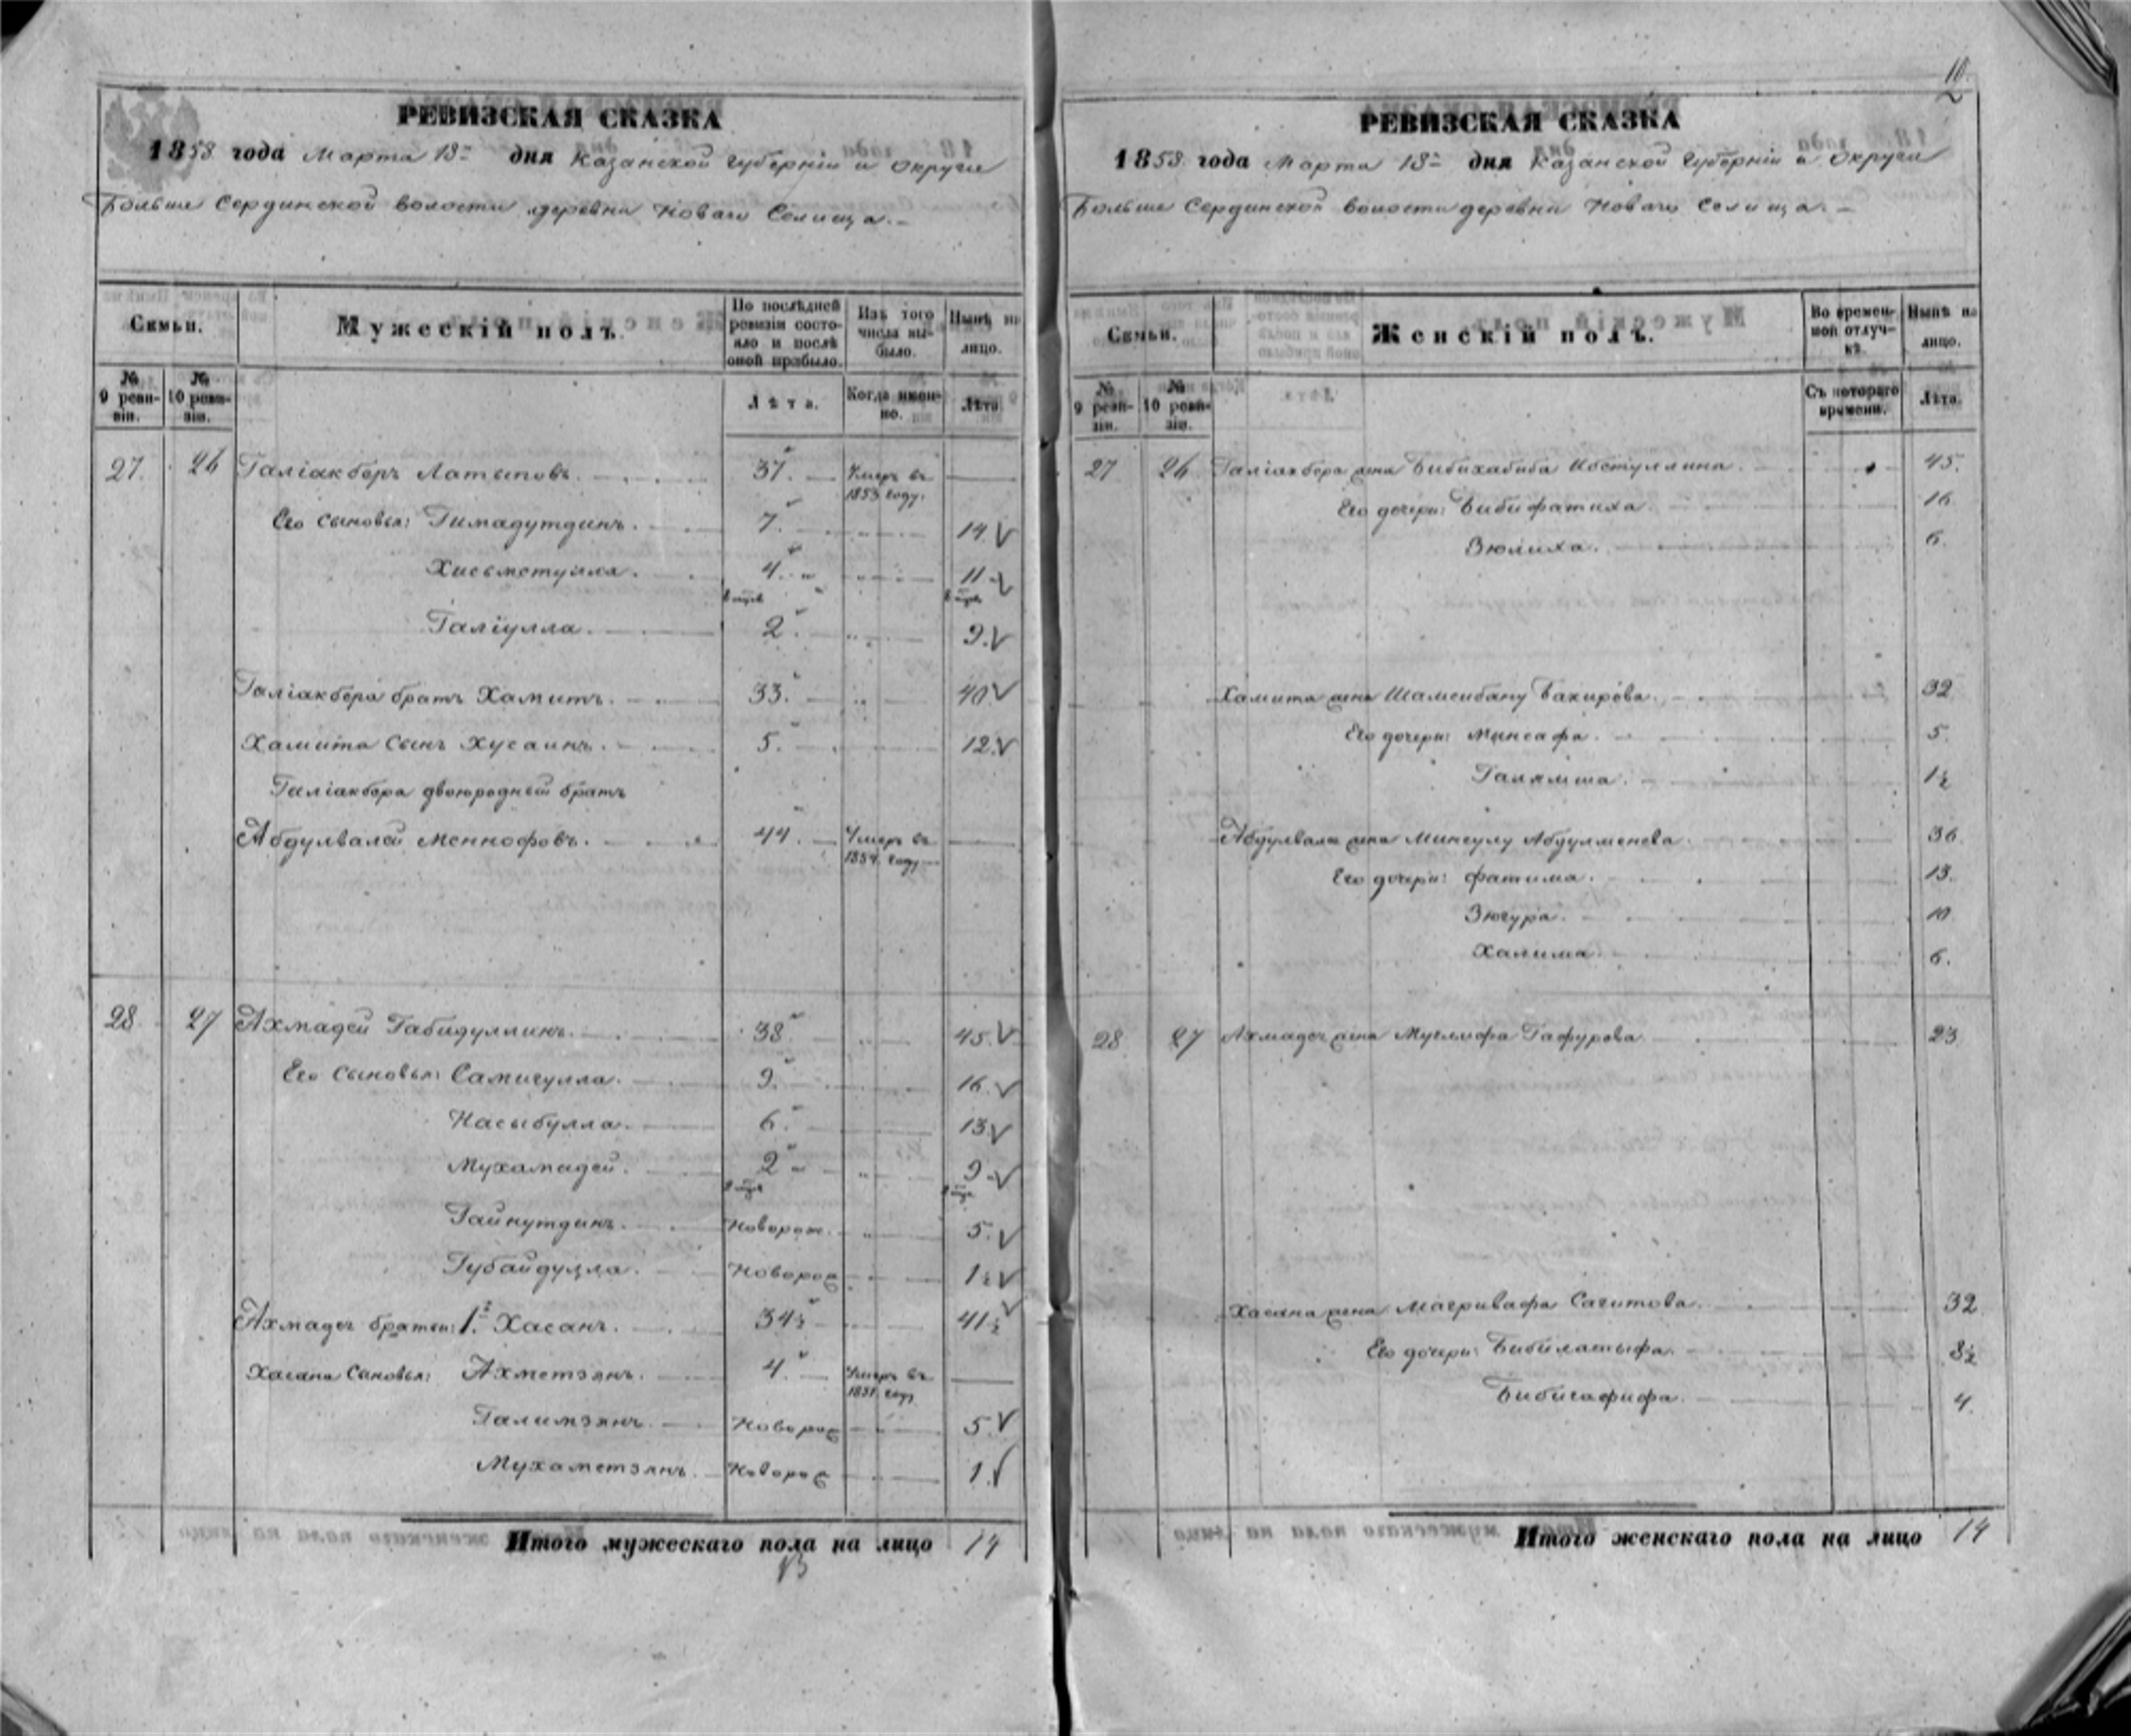 РЕВИЗСКАЯ СКАЗКА
1858 года Марта 13 дня Казанской губерніи и округи
Больше Сердинской волости деревни Новаго Селища.
Семьи.
Мужескій полъ.
По послѣдней ревизіи состояло и послѣ оной прибыло.
Изъ того числа выбыло.
Нынѣ на лицо.
№ 9 ревизіи.
№ 10 ревизіи.
Лѣта.
Когда именно.
Лѣта.
27. 26 Галіакберъ Латыповъ. 37. Умеръ въ 1853 году.
Его сыновья: Гимадутдинъ. 7. 14.
Хисьметулла. 4. 11
Галіулла. 2. 9.
Галіакбера братъ Хамитъ. 33. 40
Хамита сынъ Хусаинъ. 5. 12.
Галіакбера двоюродный братъ
Абдулвалей Меннофовъ. 44. Умеръ въ 1854. году
28. 27 Ахмадей Габидуллинъ. 38 45.
Его сыновья: Самигулла. 9. 16.
Насыбулла. 6. 13.
Мухамадей. 2 9
Гайнутдинъ. Новорож. 5.
Губайдулла. Новорож 1½
Ахмадея братья: 1. Хасанъ. 34½ 41½
Хасана Сановья: Ахметзянъ. 4. Умеръ въ 1851. году
Галимзянъ. Новорож 5.
Мухаметзянъ. Новорож 1.
Итого мужескаго пола на лицо 14
13
10
РЕВИЗСКАЯ СКАЗКА
1858 года Марта 13 дня Казанской губерніи и округи
Больше Сердинской волости деревни Новаго Селища.
Семьи.
Женскій полъ.
Во временной отлучкѣ.
Нынѣ на лицо.
№ 9 ревизіи.
№ 10 ревизіи.
Съ котораго времени.
Лѣта.
27 26 Галіакбера жена Бибихабиба Ибетуллина. 45.
Его дочери: Бибифатиха. 16
Зюлиха. 6.
Хамита жена Шамсибану Бакирова. 32
Его дочери: Минсафа. 5.
Галямша. 1½
Абдулвалея жена Мингулу Абдулменева. 36.
Его дочери: Фатима. 13.
Зюгура. 10
Халима. 6.
28 27 Ахмадея жена Муглифа Гафурова 23
Хасана жена Магривафа Сагитова. 32
Его дочери: Бибилатыфа. 8½
Бибигафифа. 4.
Итого женскаго пола на лицо 14